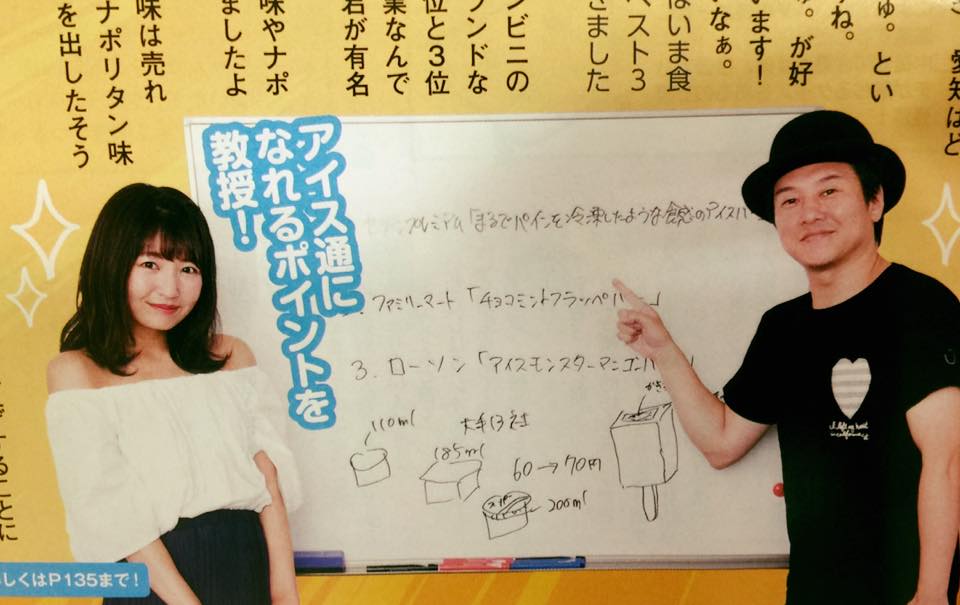 愛知はど
ゅ。とい
ね。
ゅ。が好
います!
いなぁ。
はいま食
ベスト3
きました
ンビニの
ンドな
位と3位
業なんで
名が有名
味やナポ
ましたよ
味は売れ
ナポリタン味
を出したそう
アイス通に
なれるポイントを
教授!
プレミアム「まるでパインを冷凍したような食感のアイスバー
ファミリーマート「チョコミントフラッペバー」
3. ローソン「アイスモンスターマンゴー
110ml
大手13社
185ml
60→70円
200ml
I left my heart
in california
ですることに
しくはP135まで!